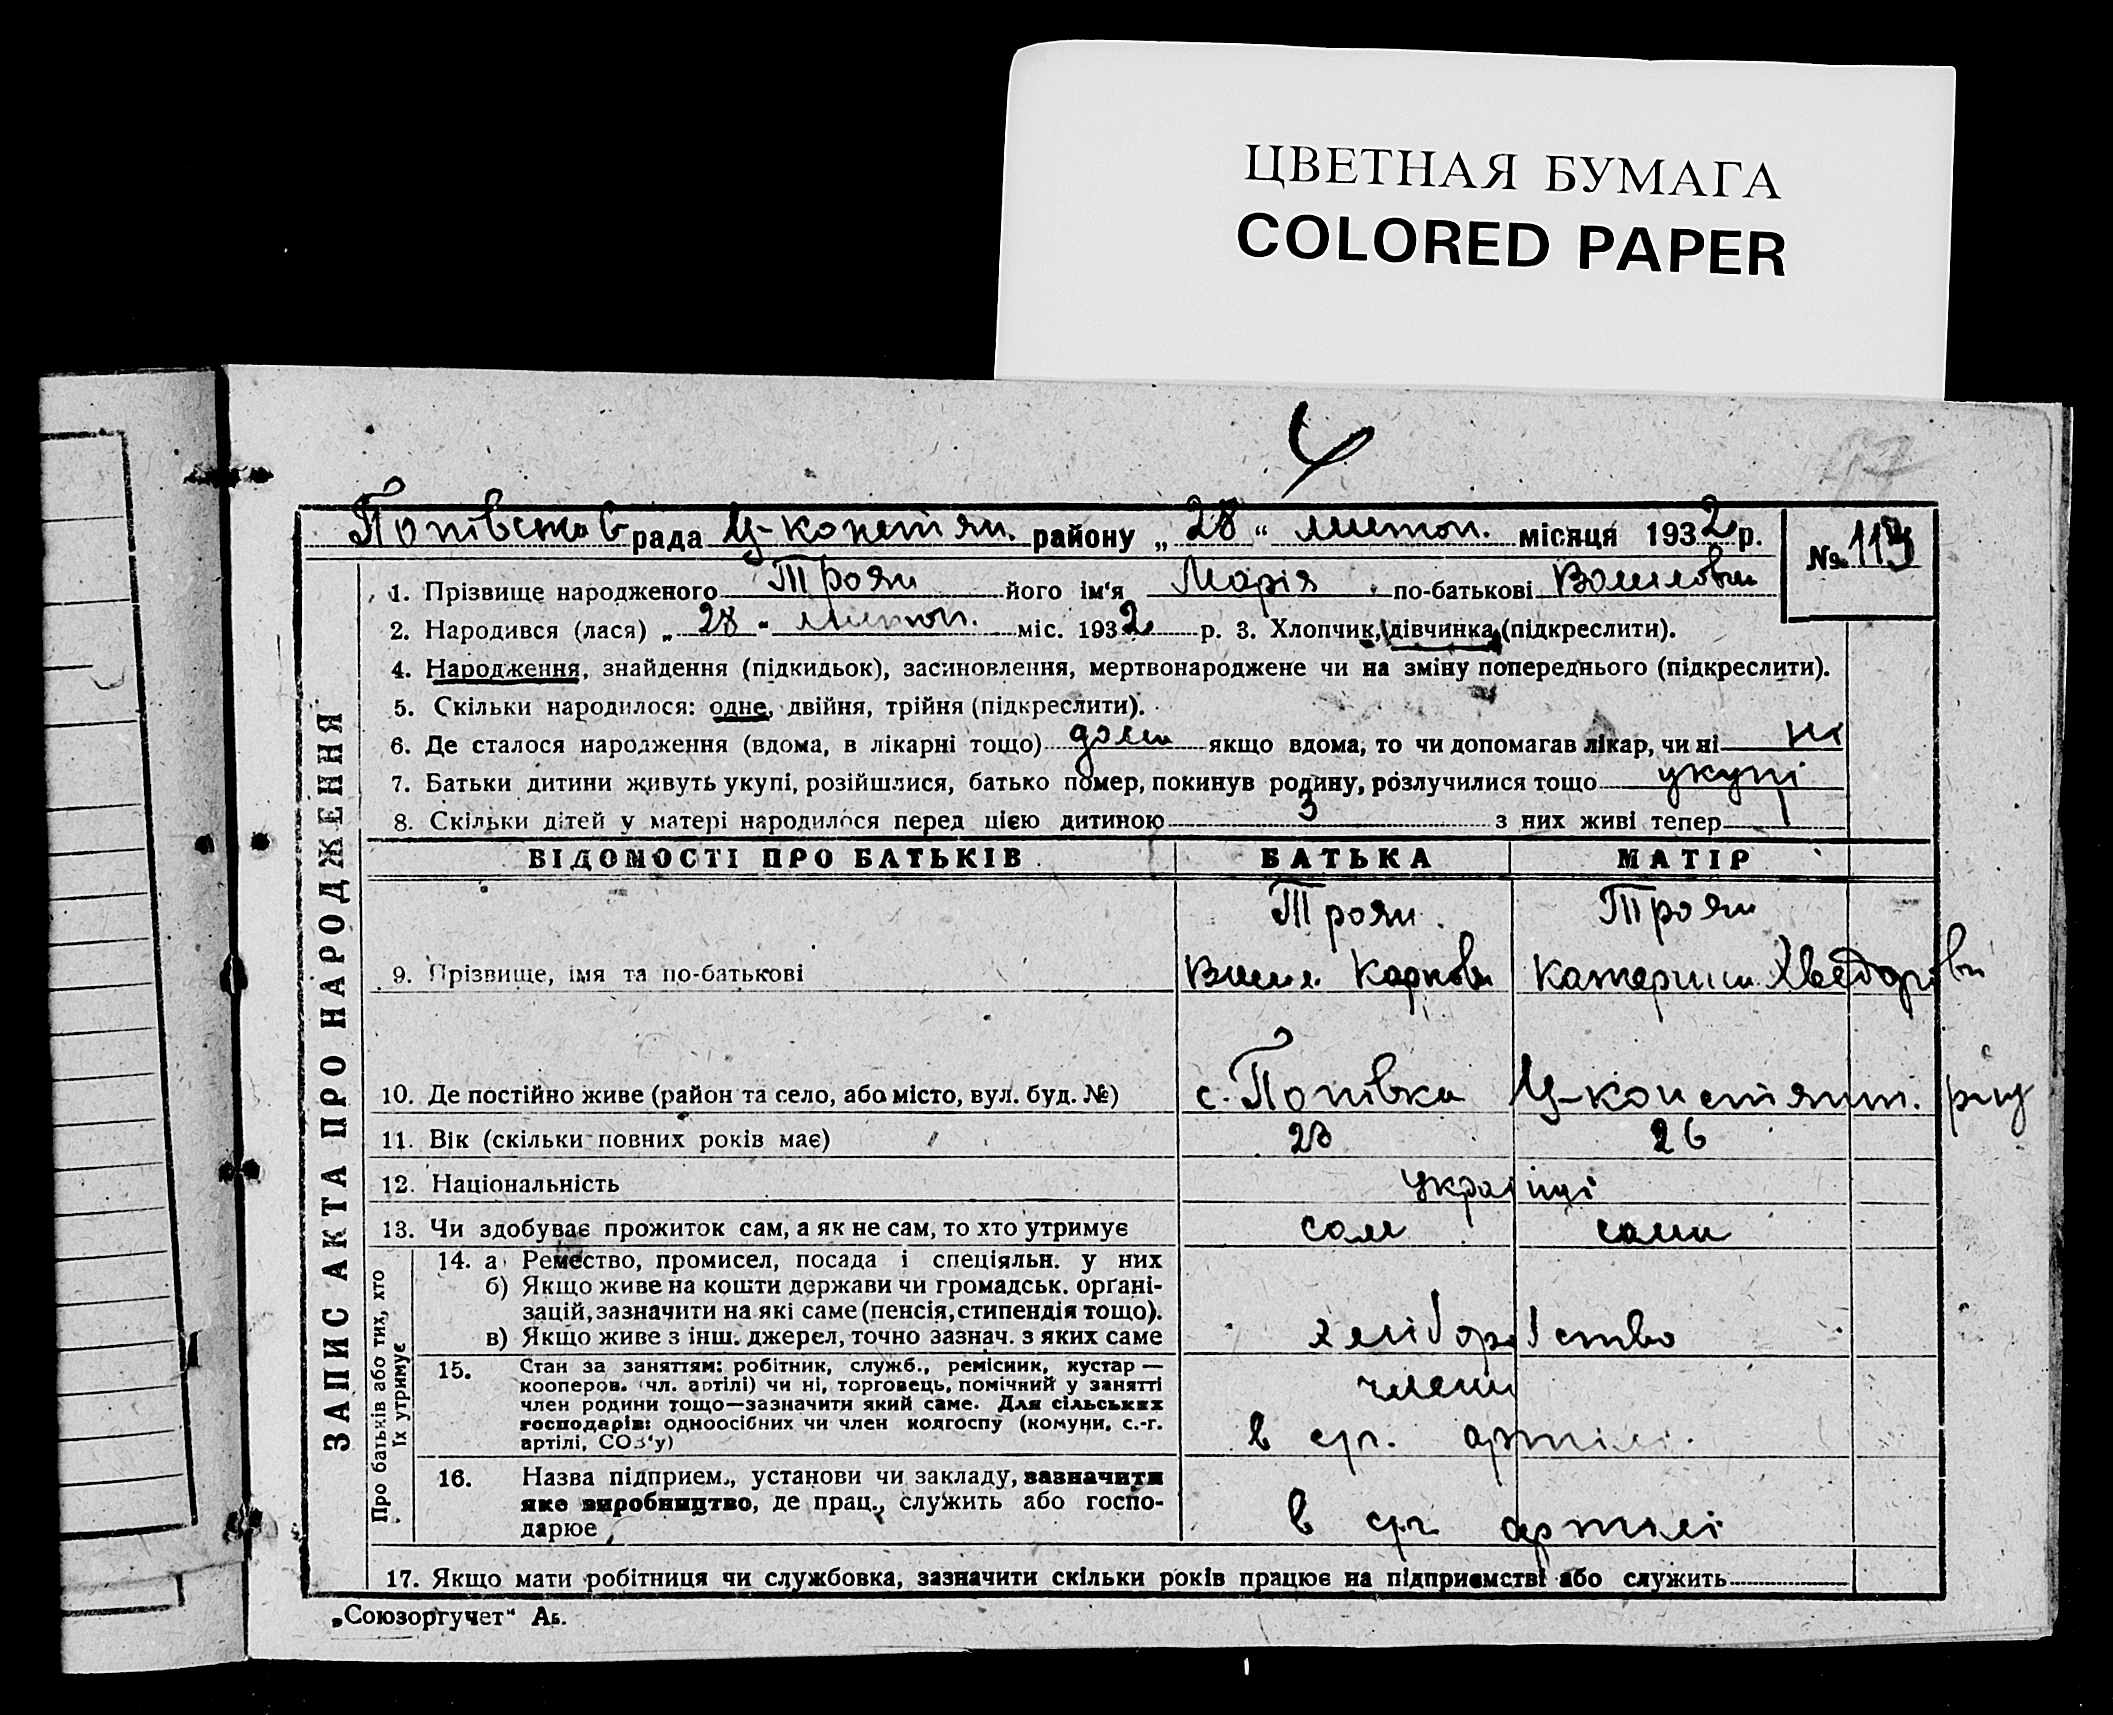 ЦВЕТНАЯ БУМАГА
COLORED PAPER
рада Ц-констян. району „28“ листоп. місяця 1932 р.
№ 113
1. Прізвище народженого Троян його ім'я Марія по-батькові
2. Народився (лася) „28“ листоп. міс. 1932 р. 3. Хлопчик, дівчинка (підкреслити).
4. Народження, знайдення (підкидьок), засиновлення, мертвонароджене чи на зміну попереднього (підкреслити).
5. Скільки народилося: одне, двійня, трійня (підкреслити).
6. Де сталося народження (вдома, в лікарні тощо) дома якщо вдома, то чи допомагав лікар, чи ні ні
7. Батьки дитини живуть укупі, розійшлися, батько помер, покинув родину, розлучилися тощо укупі
8. Скільки дітей у матері народилося перед цією дитиною 3 з них живі тепер 1
ЗАПИС АКТА ПРО НАРОДЖЕННЯ
ВІДОМОСТІ ПРО БАТЬКІВ БАТЬКА МАТІР
Троян Троян
9. Прізвище, імя та по-батькові Катерина
10. Де постійно живе (район та село, або місто, вул. буд. №) с. Попівка Ц-констянт. рну
11. Вік (скільки повних років має) 26
12. Національність українці
13. Чи здобуває прожиток сам, а як не сам, то хто утримує сам сама
Про батьків або тих, хто їх утримує
14. а) Ремество, промисел, посада і спеціяльн. у них
б) Якщо живе на кошти держави чи громадськ. органі-
зацій, зазначити на які саме (пенсія, стипендія тощо).
в) Якщо живе з інш. джерел, точно зазнач. з яких саме хліборобство
15. Стан за заняттям: робітник, служб., ремісник, кустар —
кооперов. (чл. артілі) чи ні, торговець, помічний у занятті
член родини тощо—зазначити який саме. Для сільських
господарів: одноосібних чи член колгоспу (комуни, с.-г.
артілі, СОЗ'у)
члени
в с.г. артілі.
16. Назва підприєм., установи чи закладу, зазначити
яке виробництво, де прац., служить або госпо-
дарює
в с.г. артілі
17. Якщо мати робітниця чи службовка, зазначити скільки років працює на підприємстві або служить
„Союзоргучет“ Аб.